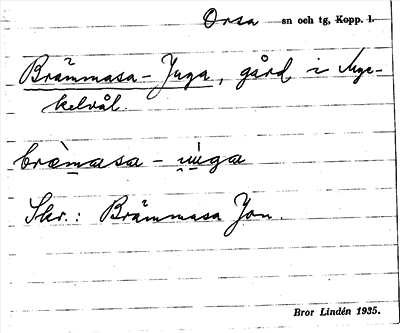 Orsa sn och tg, Kopp. l.
Brämmasa-Juga, gård i Myc-
kelvål.
bræ̀m̲asa - ùi̯ga
Skr.: Brämmasa Jon.
Bror Lindén 1935.